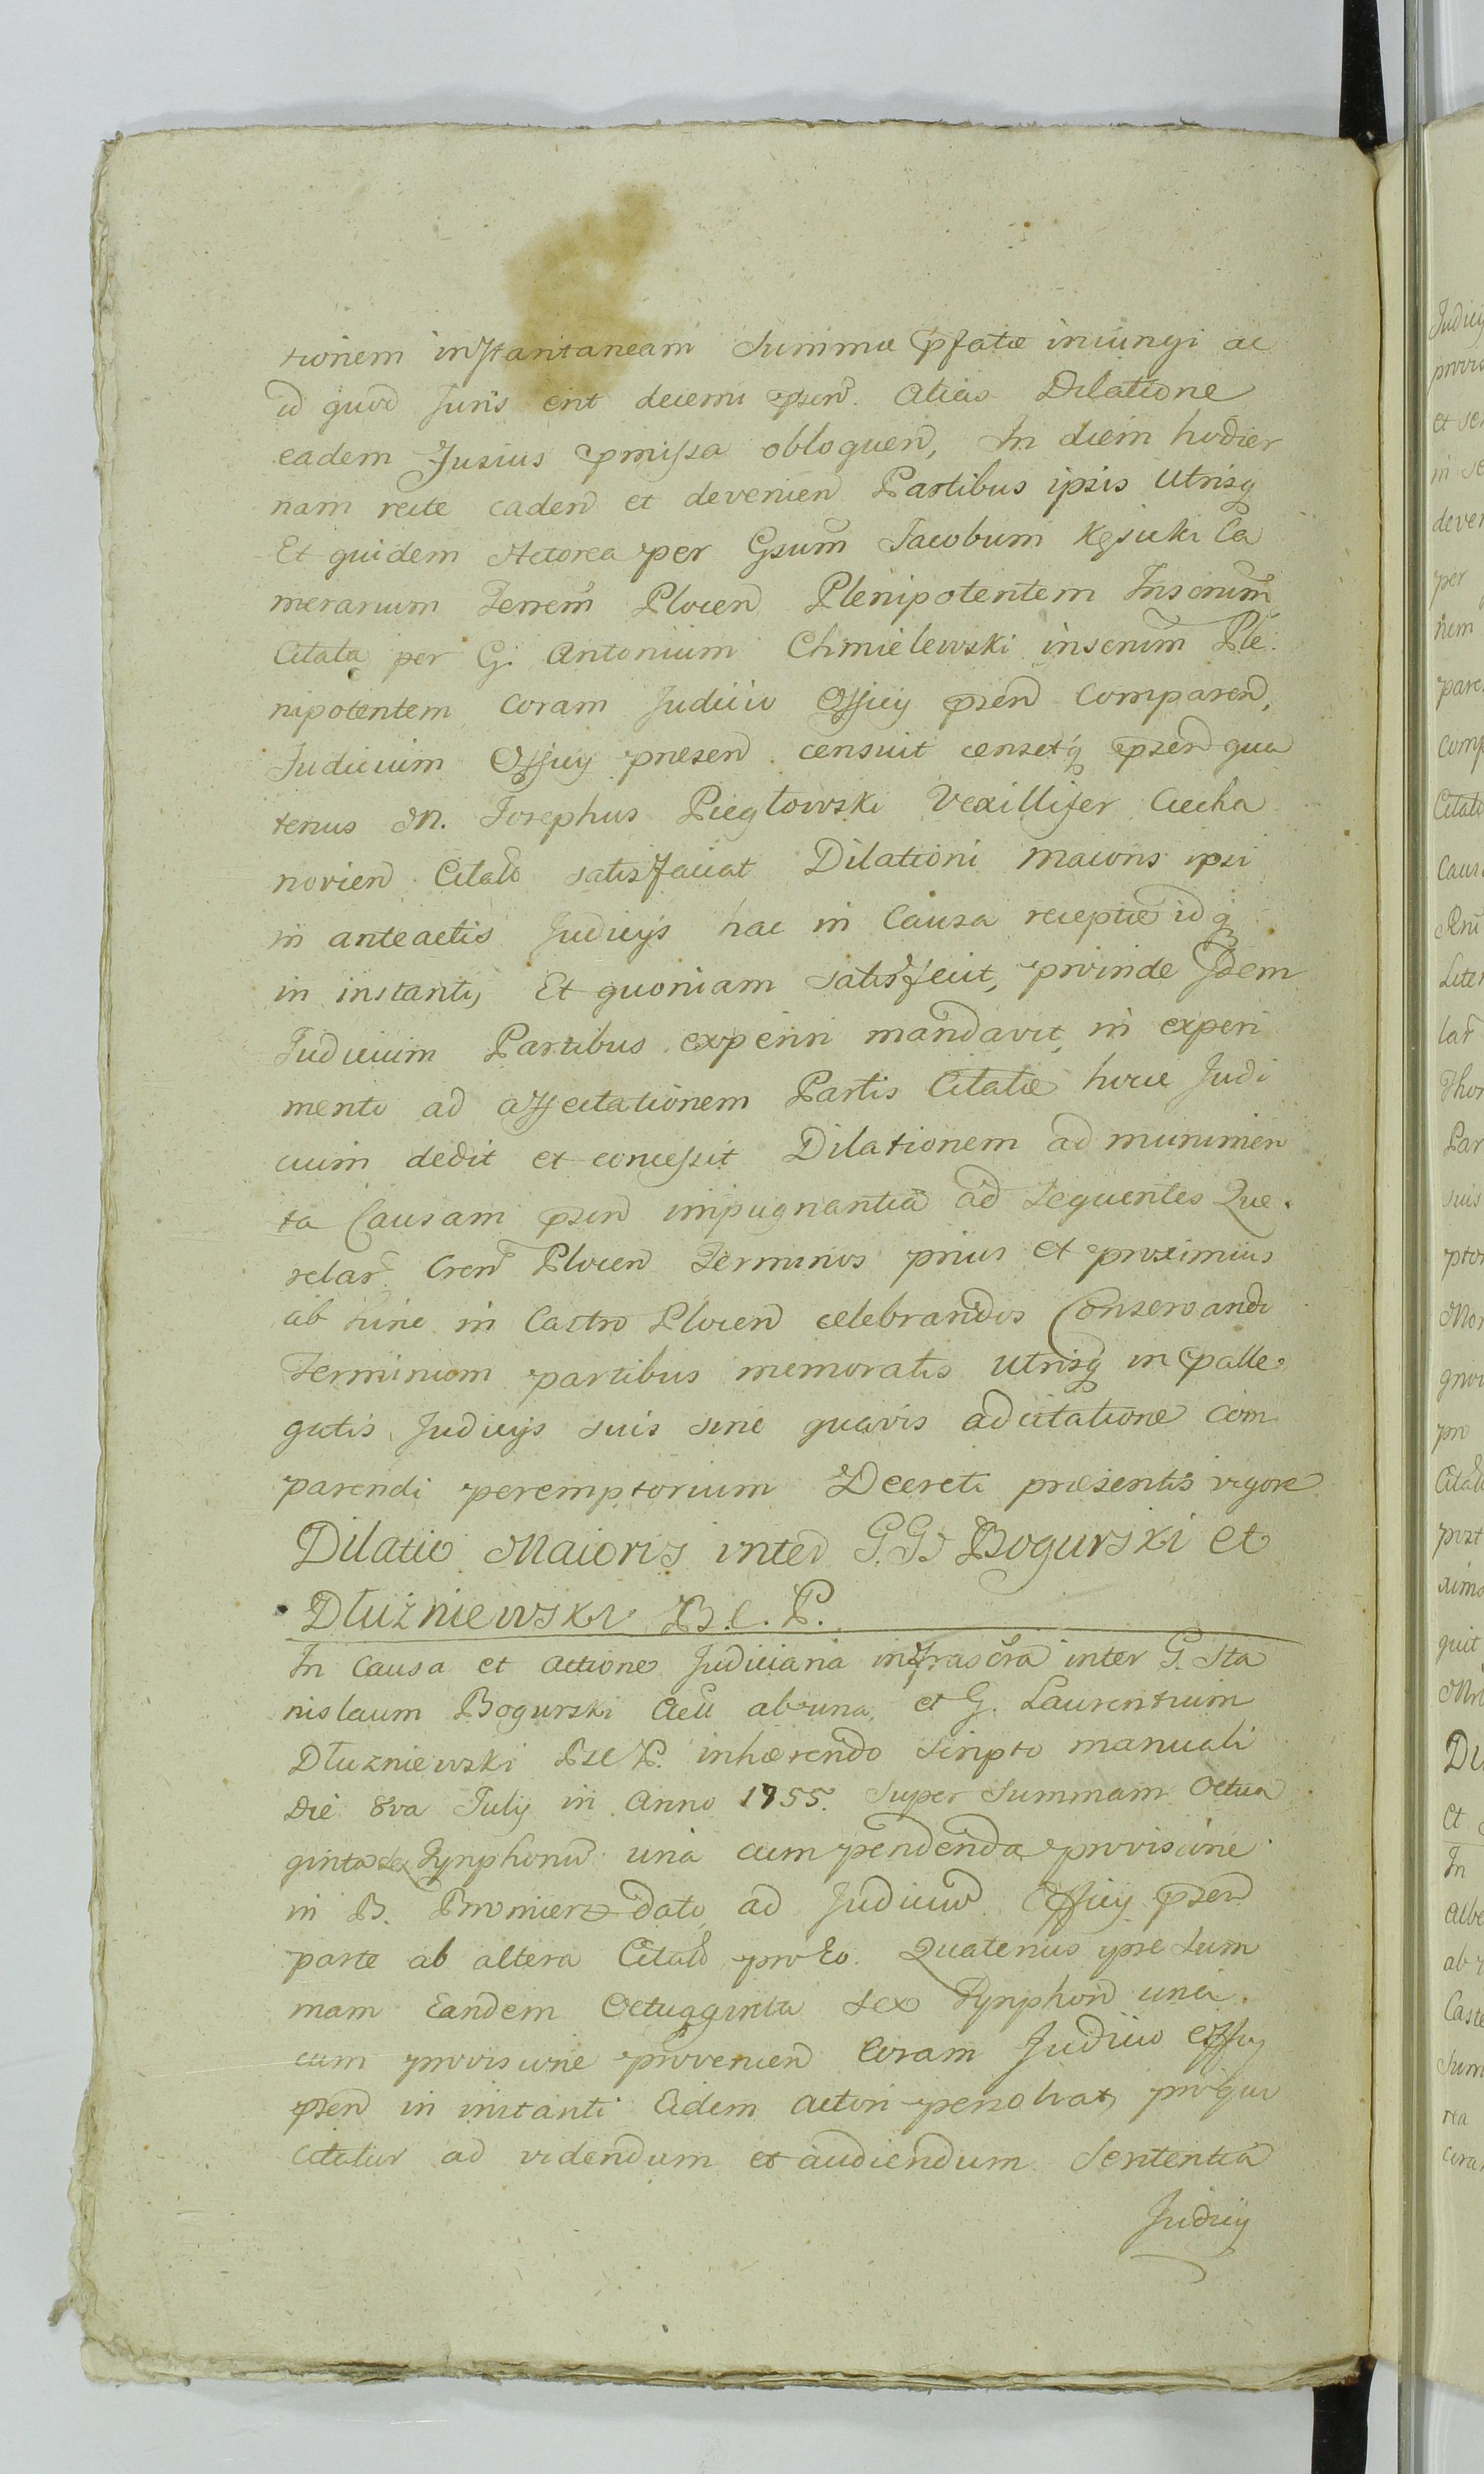 tionem instantaneam Summæ pfatæ iniungi ac
id quod Juris erit decerni psen. alias Dilatione
eadem Jusius pmissa obloquen, In diem hodier
nam recte caden et devenien Partibus ipsis Utrisq
Et quidem Actorea per Gsum Jacobum Ca
merarium Terrem Plocen Plenipotentem Inscrium
Citata per G. Antonium Chmielewski inscrium Ple:
nipotentem coram Judicio Officy psen Comparen,
Judicium Officy præsen censuit censetq psen qua
tenus M. Josephus Piegłowski Vexillifer Ciecha
novien Citats satisfaciat Dilationi Maioris ipsi
in anteactis Judicys hac in Causa receptæ idq
in instanti, Et quoniam satisfecit, proinde Idem
Judicium Partibus experiri mandavit, in experi
mento ad affectationem Partis Citatæ hocce Judi
cium dedit et concessit Dilationem ad munimen
ta Causam psen impugnantia ad sequentes Que.
relar. Cren Plocen Terminos prius et proximius
ab hinc in Castro Plocen celebrandos Conservando
Terminum partibus memoratis Utrisq in palle.
gatis Judicys suis sine quavis adcitatione com
parendi peremptorium Decreti præsentis vigore
Dilatio Maioris inter G.G. Bogurski et
Dłużniewski B.C.P.
In Causa et actione Judiciaria infrascra inter G. Sta
nislaum Bogurski ab una, et G. Laurentium
Dłuzniewski inhærendo scripto manuali
Die 8va July in Anno 1755. Super Summam Octua
ginta sex Tynphon una cum pendenda provisione
in B. Promierz dato ad Judicium Officy psen
parte ab altera Citats pro Eo. Quatenus ipse Sum
mam Eandem Octugginta sex Tynphon una
cum provisione provenien Coram Judicio Officy
psen in instanti Eidem actori persolvat, proquo
citatur ad videndum et audiendum Sententia
Judicy